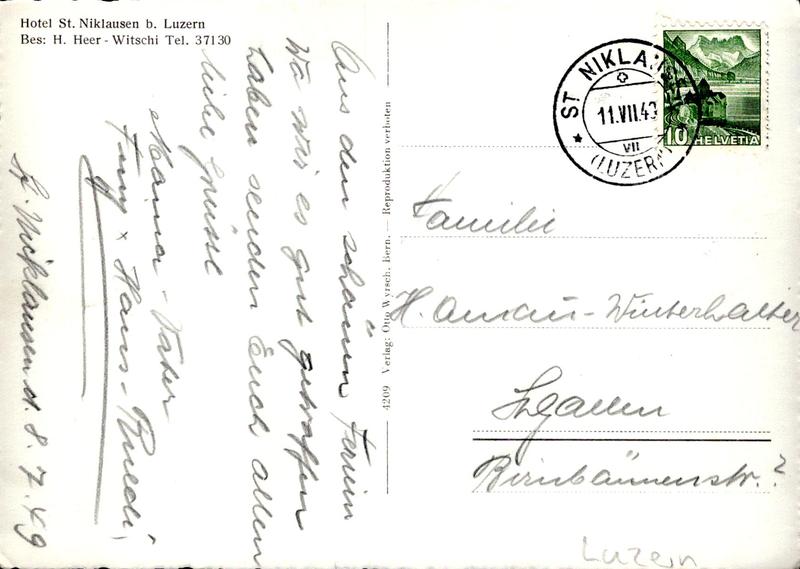 Hotel St. Niklausen b. Luzern
Bes: H. Heer - Witschi Tel. 37130
Aus den schönen Ferien
wo wir es gut getroffen
haben senden Euch allen
liebe Grüsse
Mama - Vater
x Hans - Ruedi,
St. Niklausen d. 8. 7. 49
4209 Verlag: Otto Wyrsch, Bern. — Reproduktion verboten
ST NIKLAUSEN
11.VII.49
VII
(LUZERN)
10 HELVETIA
Familie
H. - Winterhalter
St. gallen
Birnbäumenstr. ?
Luzern